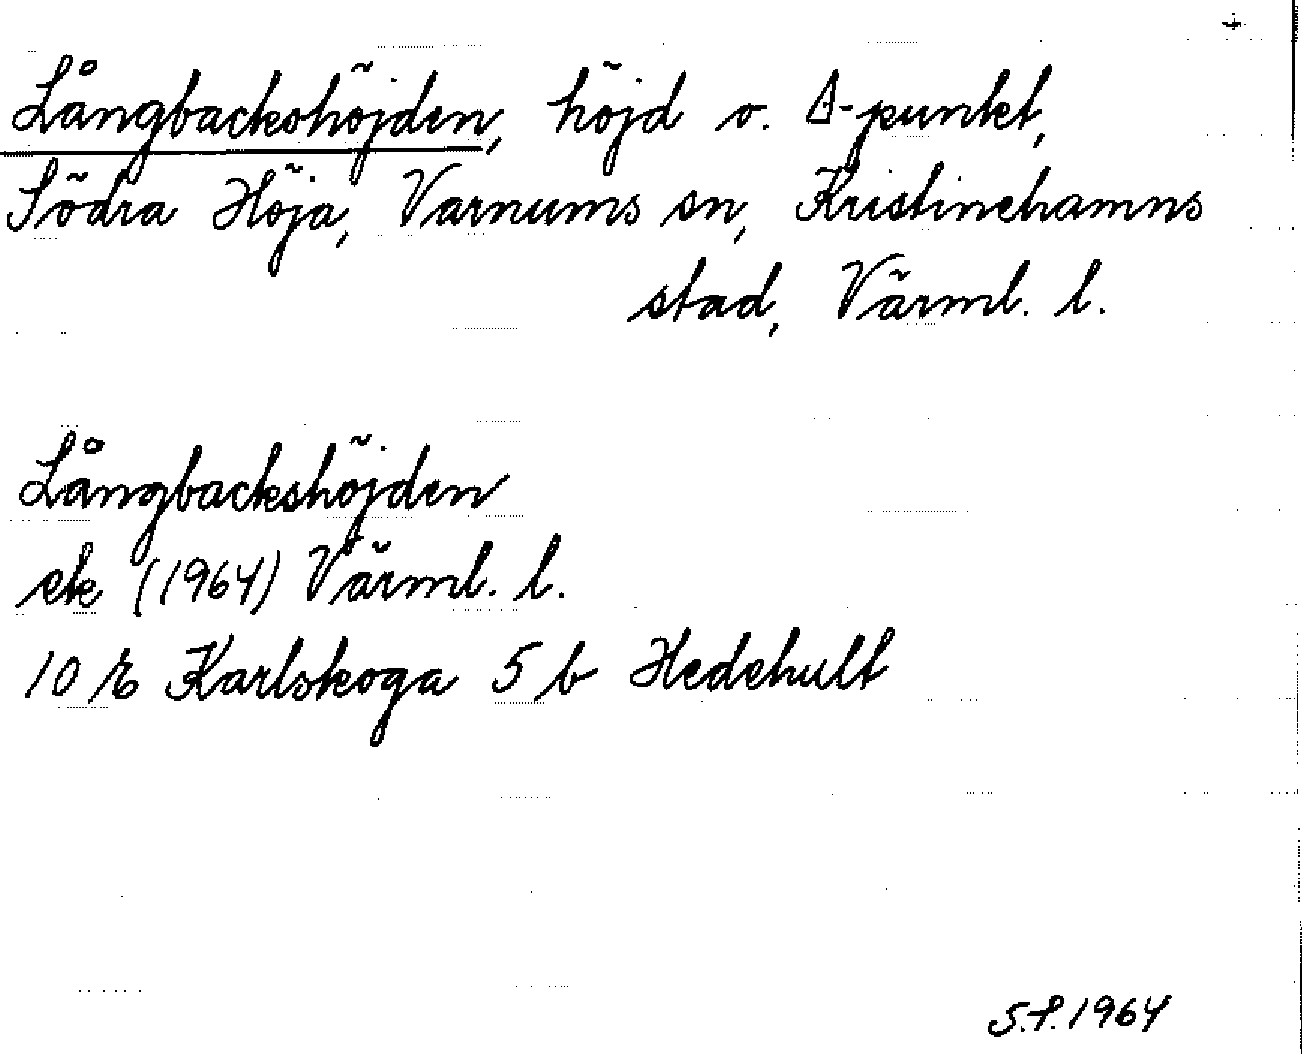 Långbackshöjden, höjd o. △-punkt,
Södra Höja, Varnums sn, Kristinehamns
stad, Värml. l.
Långbackshöjden
ek (1964) Värml. l.
10 E Karlskoga 5 b Hedehult
S.P. 1964